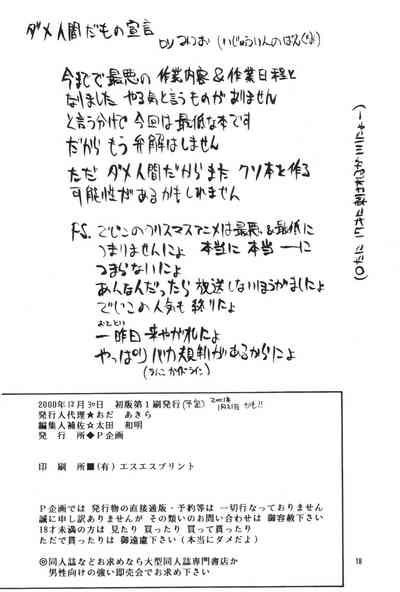 ダメ人間だもの宣言
今までで最悪の作業内容&作業日程と
なりました やる気と言うものがありません
と言う分けで 今回は最低な本です
だから もう弁解はしません
ただ ダメ人間だからまた クソ本を作る
可能性があるかもしれません
P.S. でじこのクリスマスアニメは最悪&最低に
つまりませんにょ 本当に 本当ーーに
つまらないにょ
あんなんだったら 放送しないほうがましにょ
でじこの人気も 終りにょ
おととい
一昨日 来やがれにょ
やっぱり バカ規制があるからにょ
2000年12月30日 初版第1刷発行(予定) 2001年
1月21日 かも!!
発行人代理★おだ あきら
編集人補佐☆太田 和明
発 行 所◆P企画
印 刷 所■(有)エスエスプリント
P企画では 発行物の直接通販・予約等は 一切行なっておりません
誠に申し訳ありませんが その類いのお問い合わせは 御容赦下さい
18才未満の方は 見たり 買ったり 買って貰ったり
ただで貰ったりは 御遠慮下さい(本当にダメだよ)
◎同人誌などお求めなら大型同人誌専門書店か
男性向けの強い即売会でお求め下さい
18